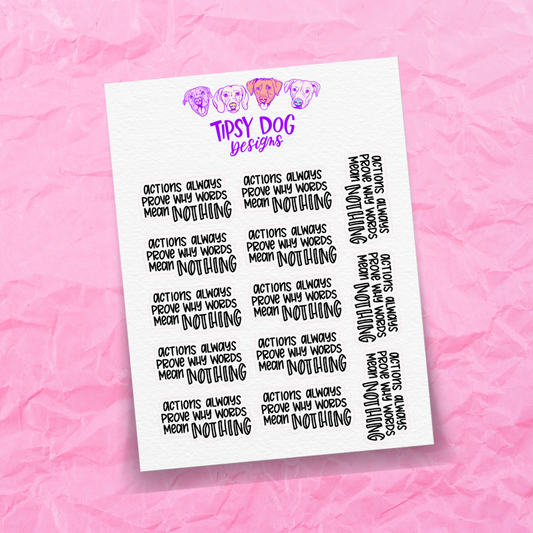 TIPSY DOG
Designs
ACTIONS ALWAYS
PROVE WHY WORDS
mean NOTHING
ACTIONS ALWAYS
PROVE WHY WORDS
mean NOTHING
ACTIONS ALWAYS
PROVE WHY WORDS
mean NOTHING
ACTIONS ALWAYS
PROVE WHY WORDS
mean NOTHING
ACTIONS ALWAYS
PROVE WHY WORDS
mean NOTHING
ACTIONS ALWAYS
PROVE WHY WORDS
mean NOTHING
ACTIONS ALWAYS
PROVE WHY WORDS
mean NOTHING
ACTIONS ALWAYS
PROVE WHY WORDS
mean NOTHING
ACTIONS ALWAYS
PROVE WHY WORDS
mean NOTHING
ACTIONS ALWAYS
PROVE WHY WORDS
mean NOTHING
ACTIONS ALWAYS
PROVE WHY WORDS
mean NOTHING
ACTIONS ALWAYS
PROVE WHY WORDS
mean NOTHING
ACTIONS ALWAYS
PROVE WHY WORDS
mean NOTHING